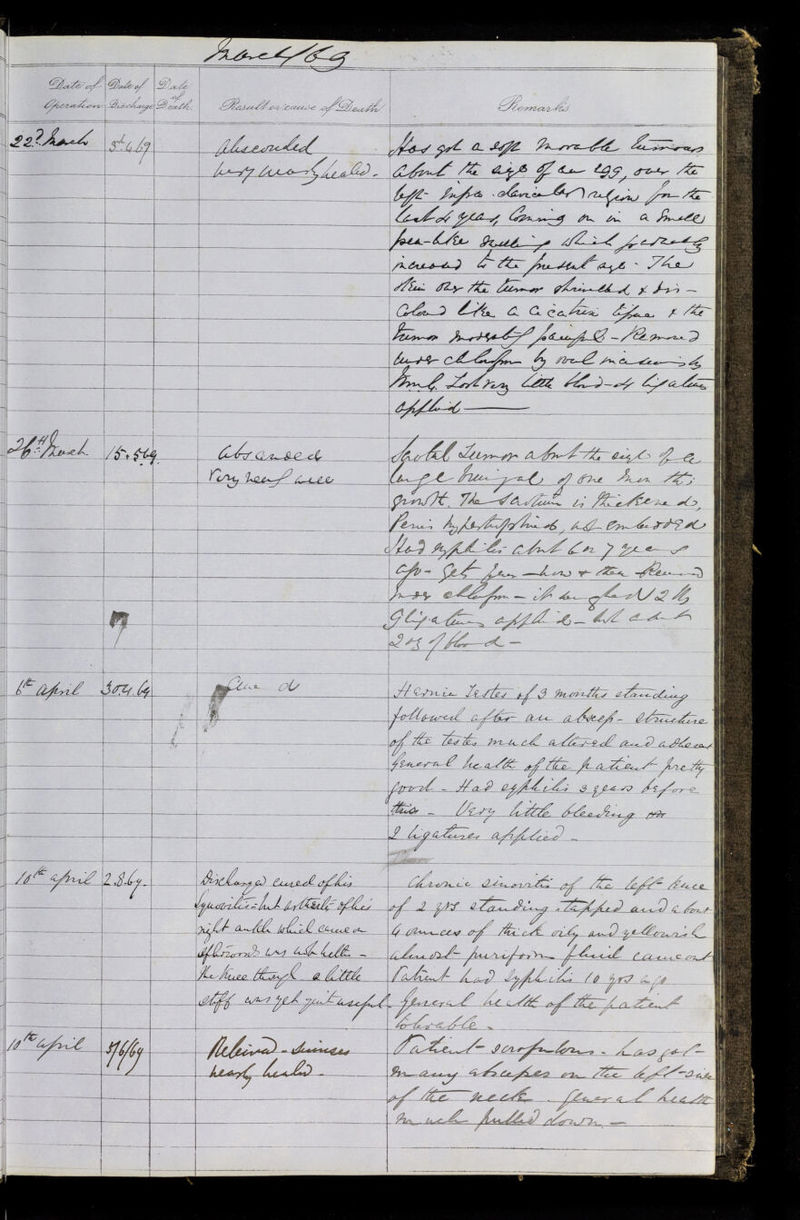 March/69
Date of Operation
Date of Discharge
Date of Death
Result or cause of Death
Remarks
22d March
5.4.69
absconded
very nearly healed -
Has got a soft movable tumour
about the size of an egg, over the
left infra-clavicular region for the
last 4 years, coming on in a small
pea-like swelling which gradually
increased to the present age. The
skin over the tumor & dis-
coloured like a cicatrix tissue & the
tumor moderately painful - Removed
under chlorfm by oval incision by
very little blood - 4 ligatures
applied
26th March
15.5.69
absconded
very nearly well
Scrotal Tumor about the size of a
large brinjal of one
growth. The scrotum is thickened,
Penis hypertrophied, & embedded
Had syphilis about 6 or 7 years
ago - gets fever now & then Removed
under chlorfm - it weighed 2 lbs
9 ligatures applied - lost about
2 oz of blood -
6th April
30.4.69
Cured
Hernia Testes of 3 months standing
followed after an abscess - structure
of the testes much altered and adherent
General health of the patient pretty
good - Had syphilis 3 years before
this - Very little bleeding
2 ligatures applied -
10th April
2.8.69.
Discharged cured of his
Synovitis - but of his
right ankle which came on
afterwards was not better -
The knee though a little
stiff was yet quite useful -
Chronic sinovitis of the left knee
of 2 yrs standing, tapped and about
4 ounces of thick oily and yellowish
almost puriform fluid came out
Patient had syphilis 10 yrs ago
general health of the patient
tolerable -
10th April
5/6/69
Relieved - sinuses
nearly healed -
Patient scrofulous - has got
many abscesses on the left side
of the neck. General health
much pulled down -